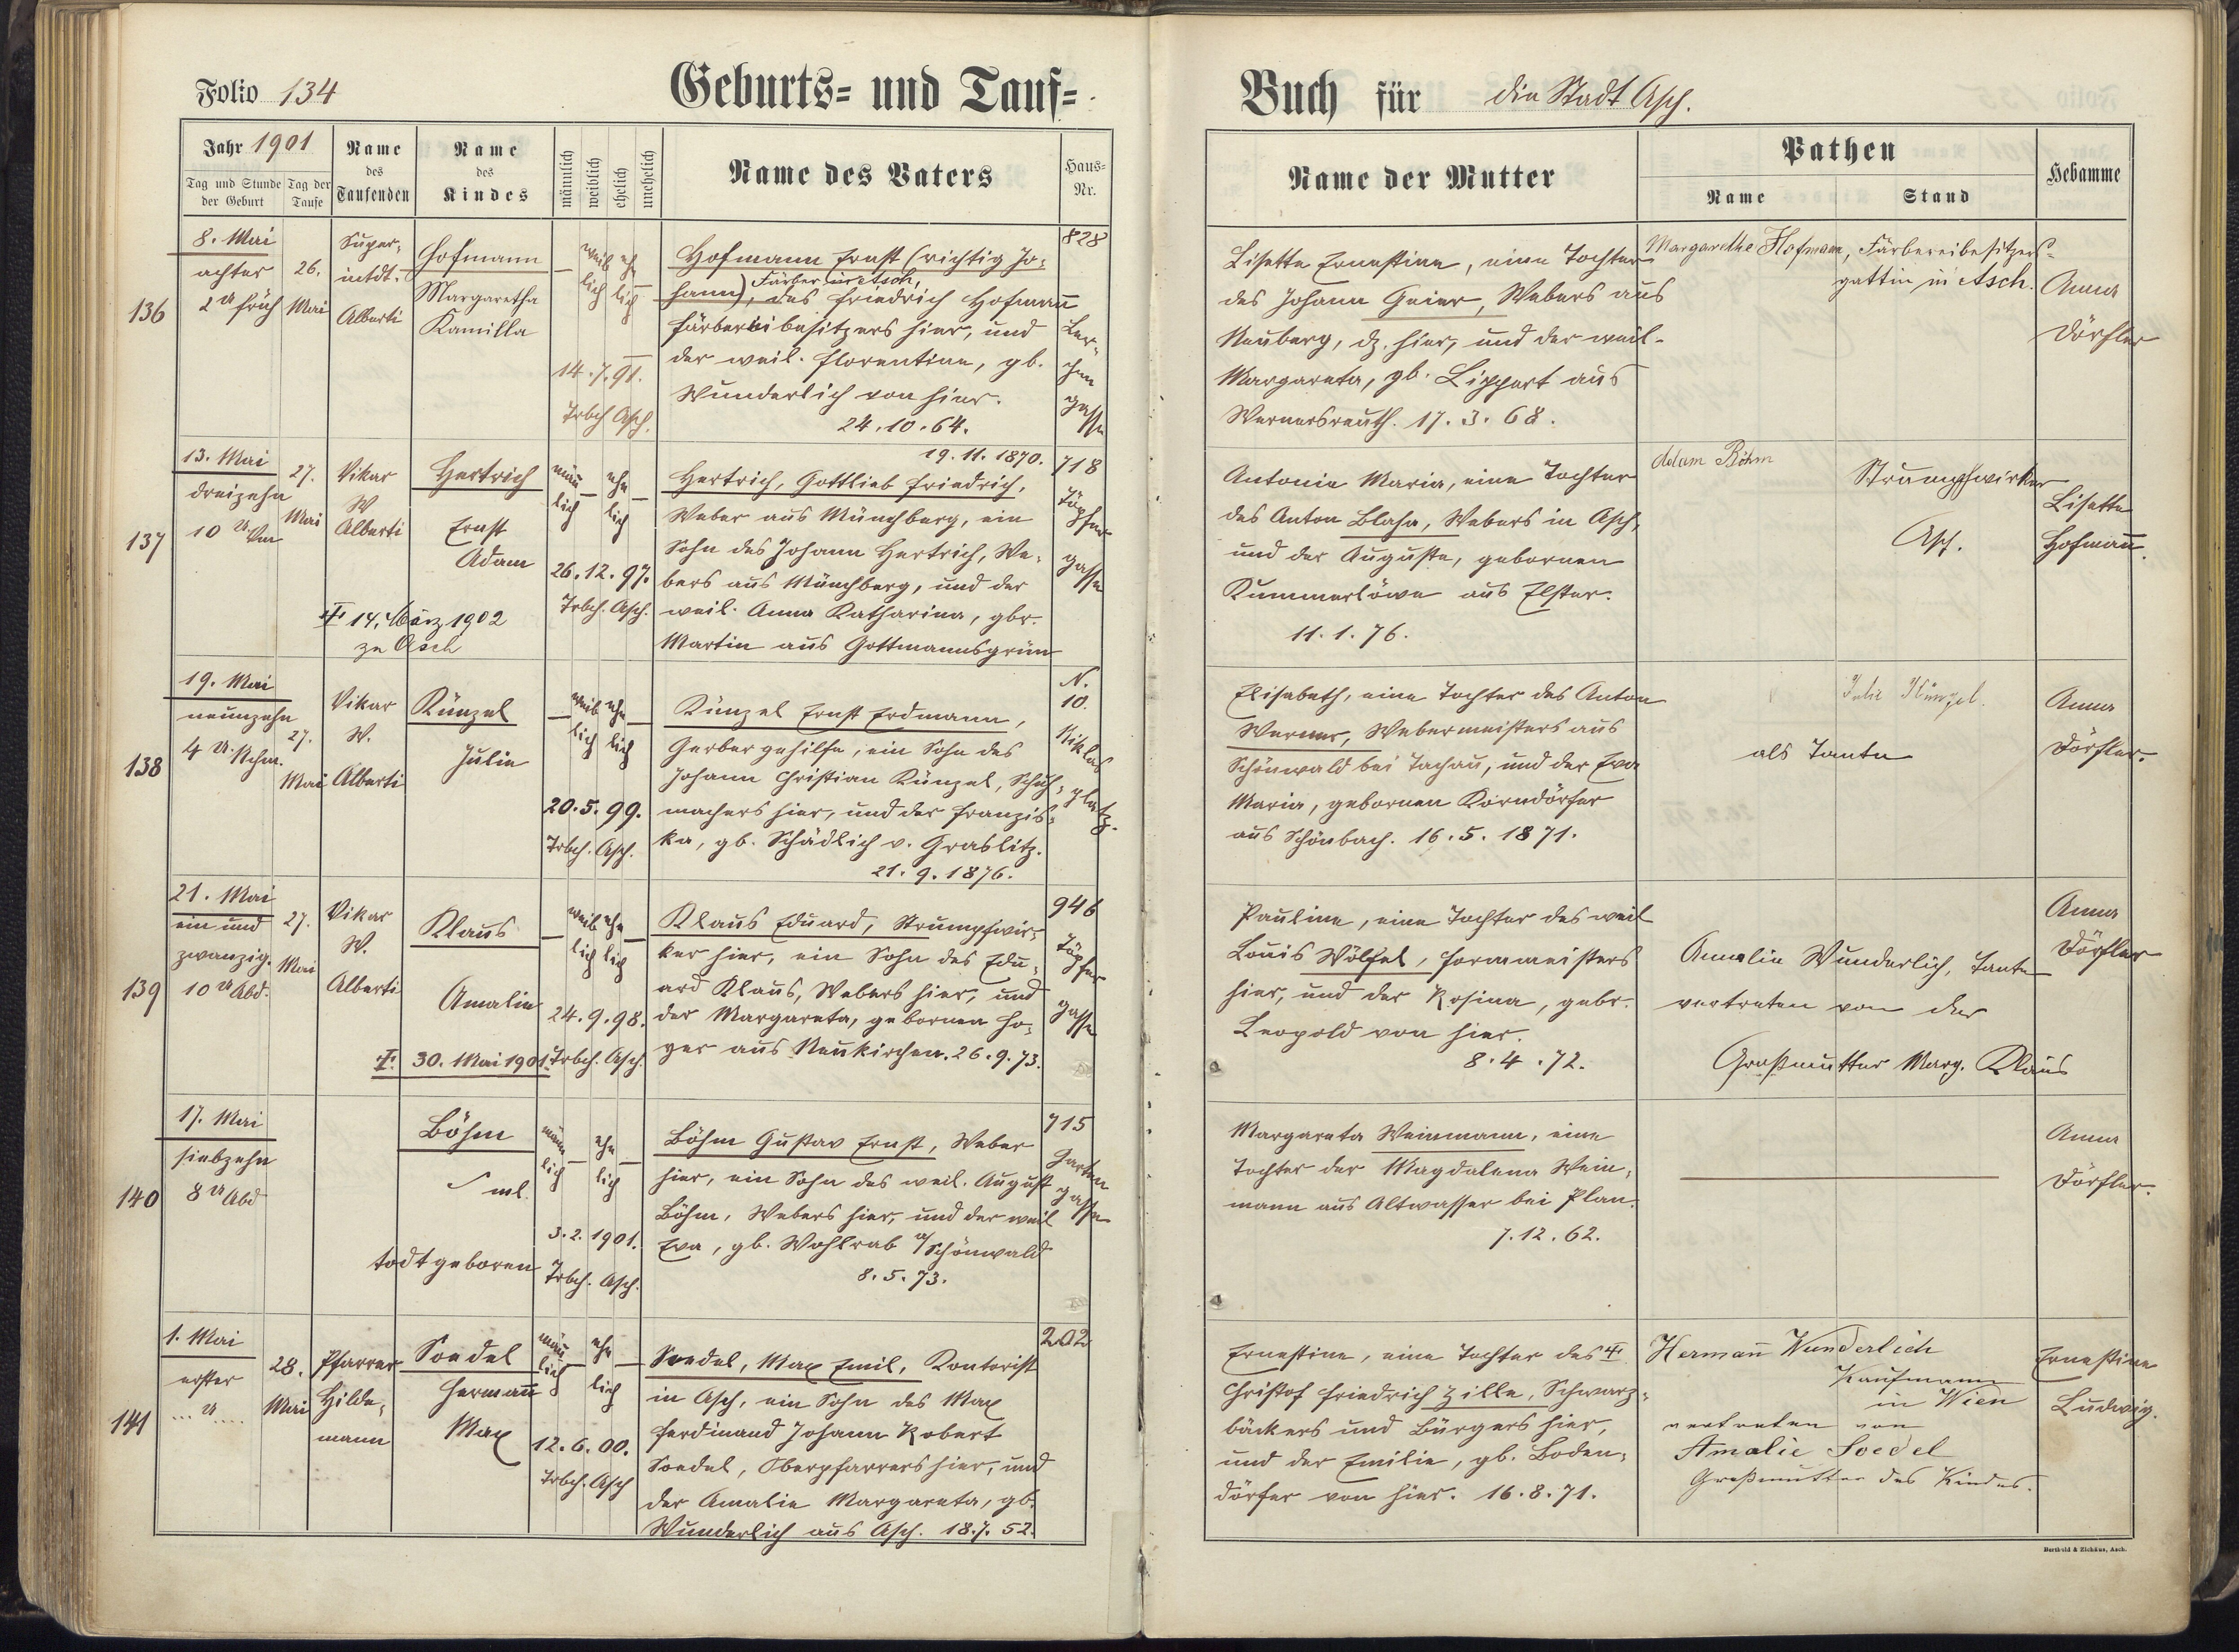 Folio 134
Geburts= und Tauf=
Jahr 1901
Tag und Stunde der Geburt
Tag der Taufe
Name des Taufenden
Name des Kindes
männlich
weiblich
ehelich
unehelich
Name des Vaters
Haus-Nr.
136
8. Mai
achter
2 U früh
26.
Mai
Super-
intdt.
Alberti
Hofmann
Margaretha
Kamilla
weib
lich
ehe
lich
14.7.91.
Trbch Asch.
Hofmann Ernst (richtig Jo-
hann), Färber in Asch,
des Friedrich Hofmann
Färbereibesitzers hier, und
der weil. Florentine, gb.
Wunderlich von hier.
24.10.64.
828
Ler-
chen
gasse
137
13. Mai
dreizehn
10 U. Vm
27.
Mai
Vikar
W
Alberti
Hertrich
Ernst
Adam
‡ 14. März 1902
zu Asch
män
lich
ehe
lich
26.12.97.
Trbch. Asch.
19.11.1870.
Hertrich, Gottlieb Friedrich,
Weber aus Münchberg, ein
Sohn des Johann Hertrich, We-
bers aus Münchberg, und der
weil. Anna Katharina, gbr.
Martin aus Gottmannsgrün
718
Töpfer
gasse
138
19. Mai
neunzehn
4 U. Nchm.
27.
Mai
Vikar
W.
Alberti
Künzel
Julie
weib
lich
ehe
lich
20.5.99.
Trbch. Asch.
Künzel Ernst Erdmann,
Gerbergehilfe, ein Sohn des
Johann Christian Künzel, Schuh-
machers hier, und der Franzis-
ka, gb. Schädlich v. Graslitz.
21.9.1876.
N.
10.
Niklas
platz.
139
21. Mai
ein und
zwanzig.
10 U Abd.
27.
Mai
Vikar
W.
Alberti
Klaus
Amalie
‡ 30. Mai 1901.
weib
lich
ehe
lich
24.9.98.
Trbch. Asch.
Klaus Eduard, Strumpfwir-
ker hier, ein Sohn des Edu-
ard Klaus, Webers hier, und
der Margareta, gebornen Ho-
yer aus Neukirchen. 26.9.73.
946
Töpfer
gasse
140
17. Mai
siebzehn
8 U Abd
Böhm
ml.
todtgeboren
män
lich
ehe
lich
3.2.1901.
Trbch. Asch.
Böhm Gustav Ernst, Weber
hier, ein Sohn des weil. August
Böhm, Webers hier, und der weil
Eva, gb. Wohlrab a/ Schönwald
8.5.73.
715
Garten
gasse
141
1. Mai
erster
... U ....
28.
Mai
Pfarrer
Hilde-
mann
Soedel
Hermann
Max
män
lich
ehe
lich
12.6.00.
Trbch. Asch
Soedel, Max Emil, Kontorist
in Asch, ein Sohn des Max
Ferdinand Johann Robert
Soedel, Oberpfarrers hier, und
der Amalie Margareta, gb.
Wunderlich aus Asch. 18.7.52.
202
Buch für die Stadt Asch.
Name der Mutter
Pathen
Name
Stand
Hebamme
Lisette Ernestine, eine Tochter
des Johann Geier, Webers aus
Neuberg, dz. hier, und der weil.
Margareta, gb. Lippert aus
Wernersreuth. 17.3.68.
Margarethe Hofmann, Färbereibesitzers-
gattin in Asch.
Anna
Dörfler
Antonie Maria, eine Tochter
des Anton Blaha, Webers in Asch,
und der Auguste, gebornen
Kummerlöwe aus Elster.
11.1.76.
Adam Böhm
Strumpfwirker
Asch.
Lisette
Hofmann.
Elisabeth, eine Tochter des Anton
Werner, Webermeisters aus
Schönwald bei Tachau, und der Eva
Maria, gebornen Korndörfer
aus Schönbach. 16.5.1871.
Julie Künzel.
als Tante
Anna
Dörfler.
Pauline, eine Tochter des weil
Louis Wölfel, Formmeisters
hier, und der Rosina, gebr.
Leopold von hier.
8.4.72.
Amalie Wunderlich, Tante
vertreten von der
Großmutter Marg. Klaus
Anna
Dörfler
Margareta Weinmann, eine
Tochter der Magdalena Wein-
mann aus Altwasser bei Plan.
7.12.62.
Anna
Dörfler.
Ernestine, eine Tochter des ‡
Christof Friedrich Zille, Schwarz-
bäckers und Bürgers hier,
und der Emilie, gb. Boden-
dörfer von hier. 16.8.71.
Hermann Wunderlich
Kaufmann
in Wien
vertreten von
Amalie Soedel
Großmutter des Kindes.
Ernestine
Ludwig.
Berthold & Eichäus, Asch.